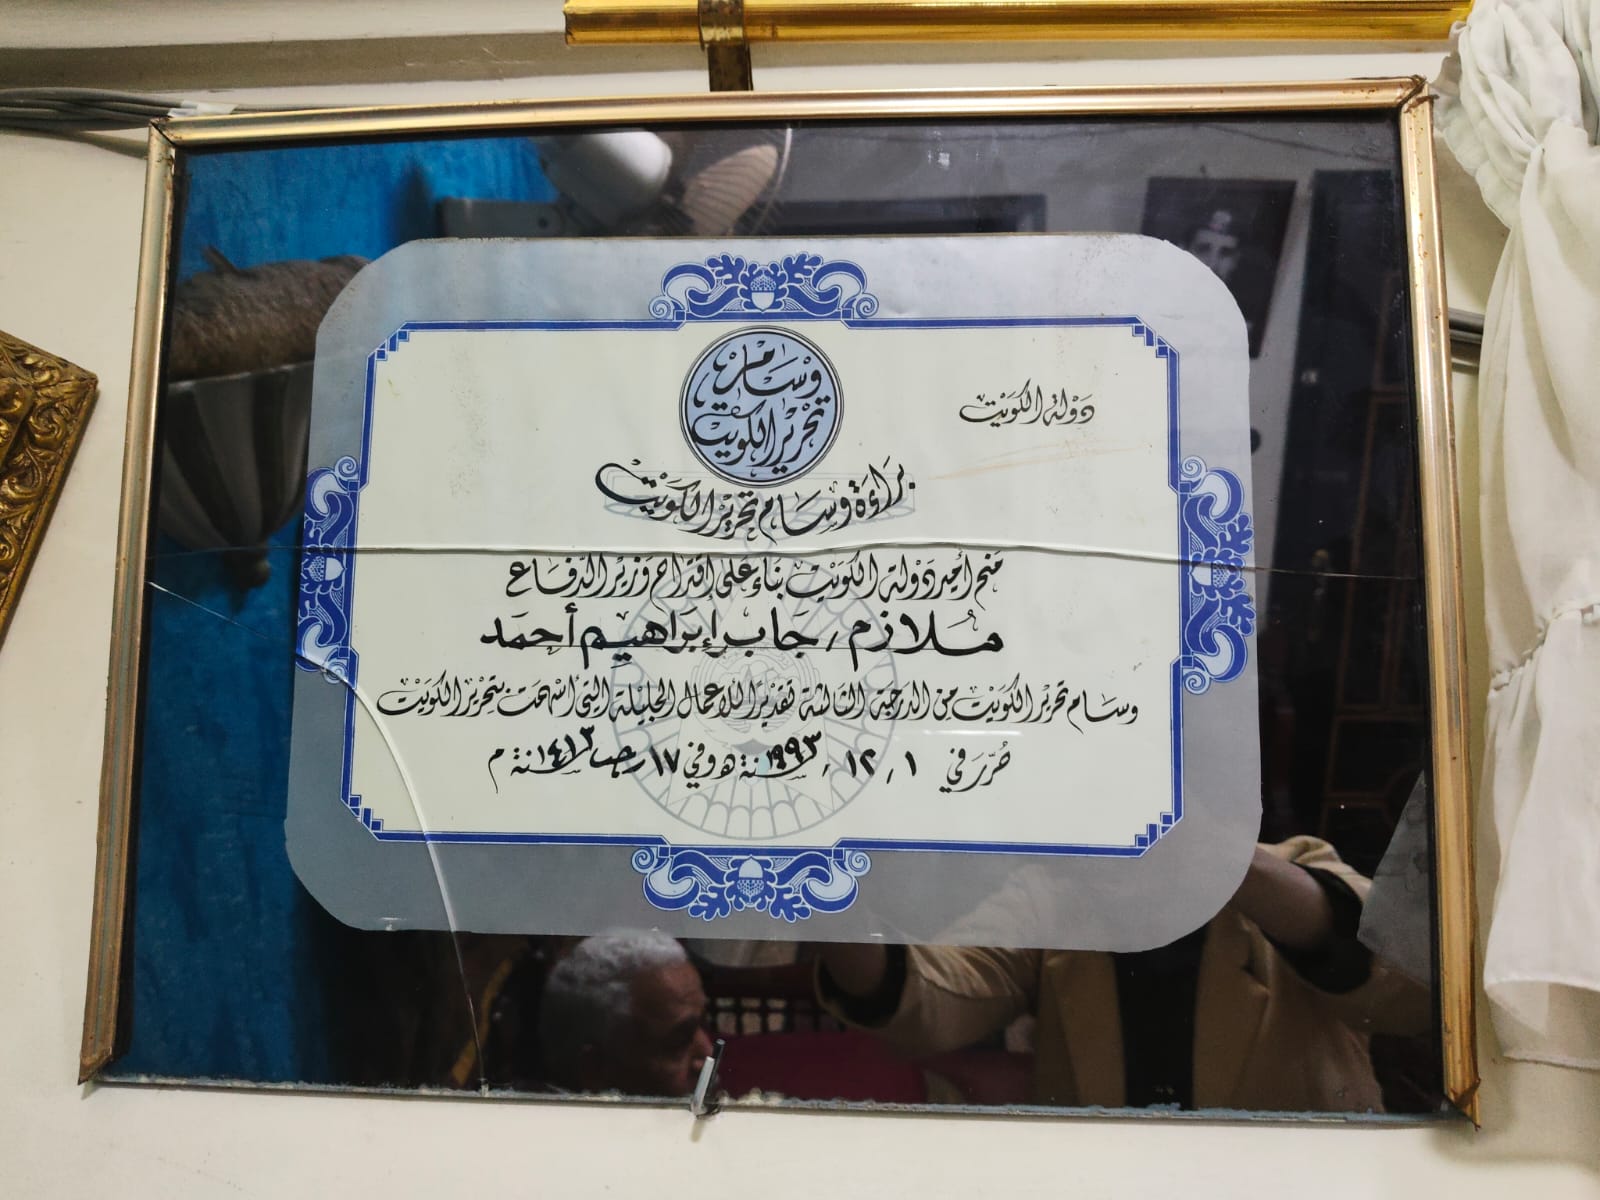 دولة الكويت
وسام
تحرير الكويت
براءة وسام تحرير الكويت
منح أمير دولة الكويت بناء على اقتراح وزير الدفاع
ملازم / جابر إبراهيم أحمد
وسام تحرير الكويت من الدرجة الثالثة تقديرا للأعمال الجليلة التي أسهمت بتحرير الكويت
حُرّر في ١ / ١٢ / ١٩٩٣ سنة هـ وفي ١٧ رجب ١٤١٣ سنة م